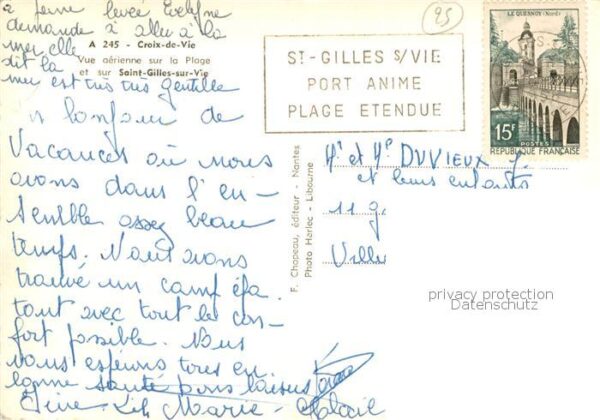 à peine levée Evelyne
demande à aller à la
mer elle
dit la
mer est très très gentille
A 245 - Croix-de-Vie
Vue aérienne sur la Plage
et sur Saint-Gilles-sur-Vie
95
ST-GILLES S/VIE
PORT ANIME
PLAGE ETENDUE
LE QUESNOY (Nord)
15F
POSTES
REPUBLIQUE FRANÇAISE
bonjour de
Vacances où nous
avons dans l'en-
semble assez beau
temps. Nous avons
trouvé un camp épa.
tant avec tout le con-
fort possible. Nous
vous espérons tous en
bonne santé
Marie-
F. Chapeau, éditeur - Nantes
Photo Herlec - Libourne
Mr et Me DUVIEUX J.
et leurs enfants
11 g.
privacy protection
Datenschutz